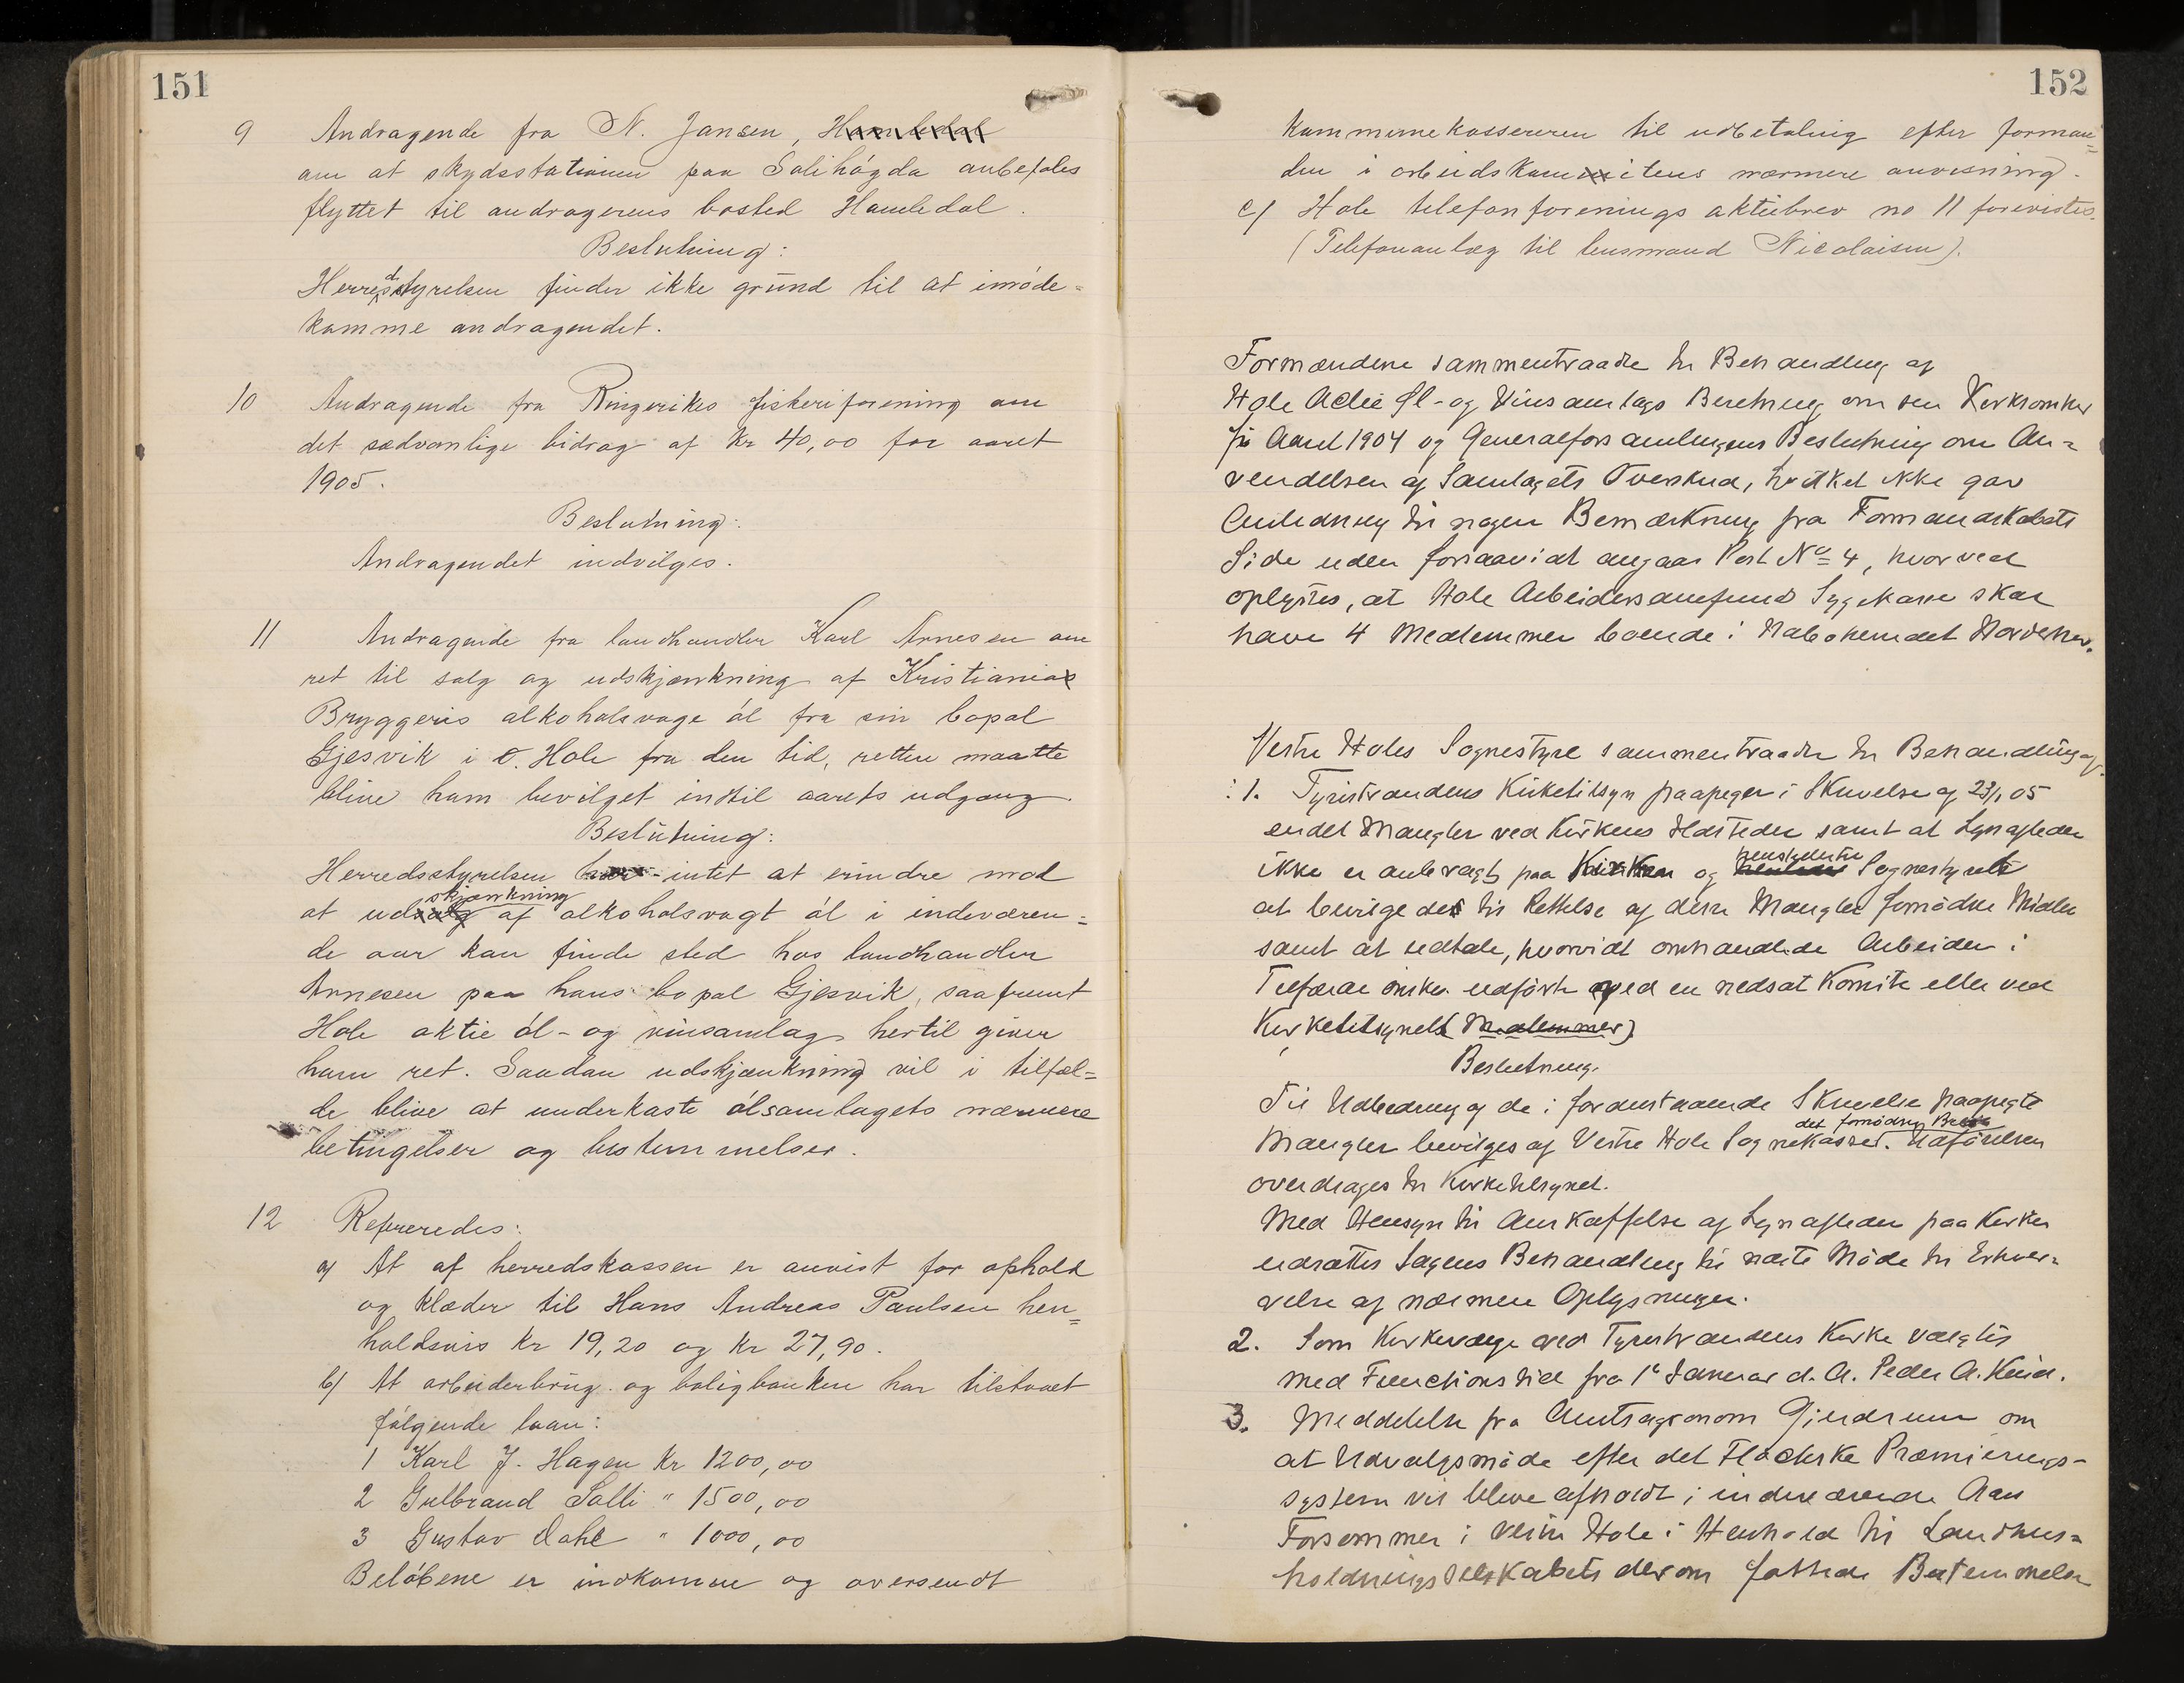 151
9 Andragende fra N. Jansen, Hamledal
om at skydsstationen paa Solihögda anbefales
flyttet til andragerens bosted Hamledal.
Beslutning:
Herredsstyrelsen finder ikke grund til at imöde=
komme andragendet.
10 Andragende fra Ringerikes fiskeriforening om
det sædvanlige bidrag af kr 40,00 for aaret
1905.
Beslutning:
Andragendet indvilges.
11 Andragende fra landhandler Karl Arnesen om
ret til salg og udskjænkning af Kristiania
Bryggeris alkoholsvage öl fra sin bopæl
Gjesvik i v. Hole fra den tid, retten maatte
blive ham bevilget indtil aarets udgang.
Beslutning:
Herredsstyrelsen har intet at erindre mod
at udskjænkning af alkoholsvagt öl i indeværen=
de aar kan finde sted hos landhandler
Arnesen paa hans bopæl Gjesvik, saafremt
Hole aktie öl- og vinsamlag hertil giver
ham ret. Saadan udskjænkning vil i tilfæl=
de blive at underkaste ölsamlagets nærmere
betingelser og bestemmelser.
12 Refereredes:
a) At af herredskassen er anvist for ophold
og klæder til Hans Andreas Paulsen hen=
holdsvis kr 19,20 og kr 27,90.
b) At arbeiderbrug- og boligbanken har tilstaaet
fölgende laan:
1 Karl J. Hagen kr 1200,00
2 Gulbrand Solli " 1500,00
3 Gustav Dahl " 1000,00
Belöbene er indkomne og oversendt
152
kommunekassereren til udbetaling efter forman=
den i arbeidskomitens nærmere anvisning.
c) Hole telefonforenings aktiebrev no 11 forevistes.
(Telefonanlæg til lensmand Nicolaisen).
Formændene sammentraadte til Behandling af
Hole Actie Øl- og Vinsamlags Beretning om sen Virksomhed
for Aaret 1904 og Generalforsamlingens Beslutning om An=
vendelsen af Samlagets Overskud, hvilket ikke gav
Anledning til nogen Bemærkning fra Formandskabets
Side uden forsaavidt angaar Post No 4, hvorved
oplystes, at Hole Arbeidersamfund Sygekasse skal
have 4 Medlemmer boende i Naboherredet Norderhov.
Vestre Holes Sognestyre sammentraadte til Behandling af:
1. Tyristrandens Kirketilsyn paapeger i Skrivelse af 23/1 05
endel Mangler ved Kirkens Ildsteder samt at Lynafleder
ikke er anbragt paa Kirken og henstiller til Sognestyret
at bevilge de til Rettelse af disse Mangler fornödne Midler
samt at udtale, hvorvidt omhandlede Arbeider i
Tilfælde önskes udfört ved en nedsat Komite eller ved
Kirketilsynet (Medlemmer)
Beslutning.
Til Udbedring af de i foranstaaende Skrivelse paapegte
Mangler bevilges af Vestre Hole Sognekasse det fornödne Belöb. Udförelsen
overdrages til Kirketilsynet.
Med Hensyn til Anskaffelse af Lynafleder paa Kirken
udsættes Sagens Behandling til næste Möde til Erhver=
velse af nærmere Oplysninger.
2. Som Kirkeværge ved Tyristrandens Kirke valgtes
med Functionstid fra 1ste Januar d. A. Peder A.
3. Meddelelse fra Amtsagronom Gjerdrum om
at Udvalgsmöde efter det Flachske Præmierings-
system vil blive afholdt i indeværende Aars
Forsommer i Vestre Hole i Henhold til Landhus=
holdningsselskabets derom fattede Bestemmelse